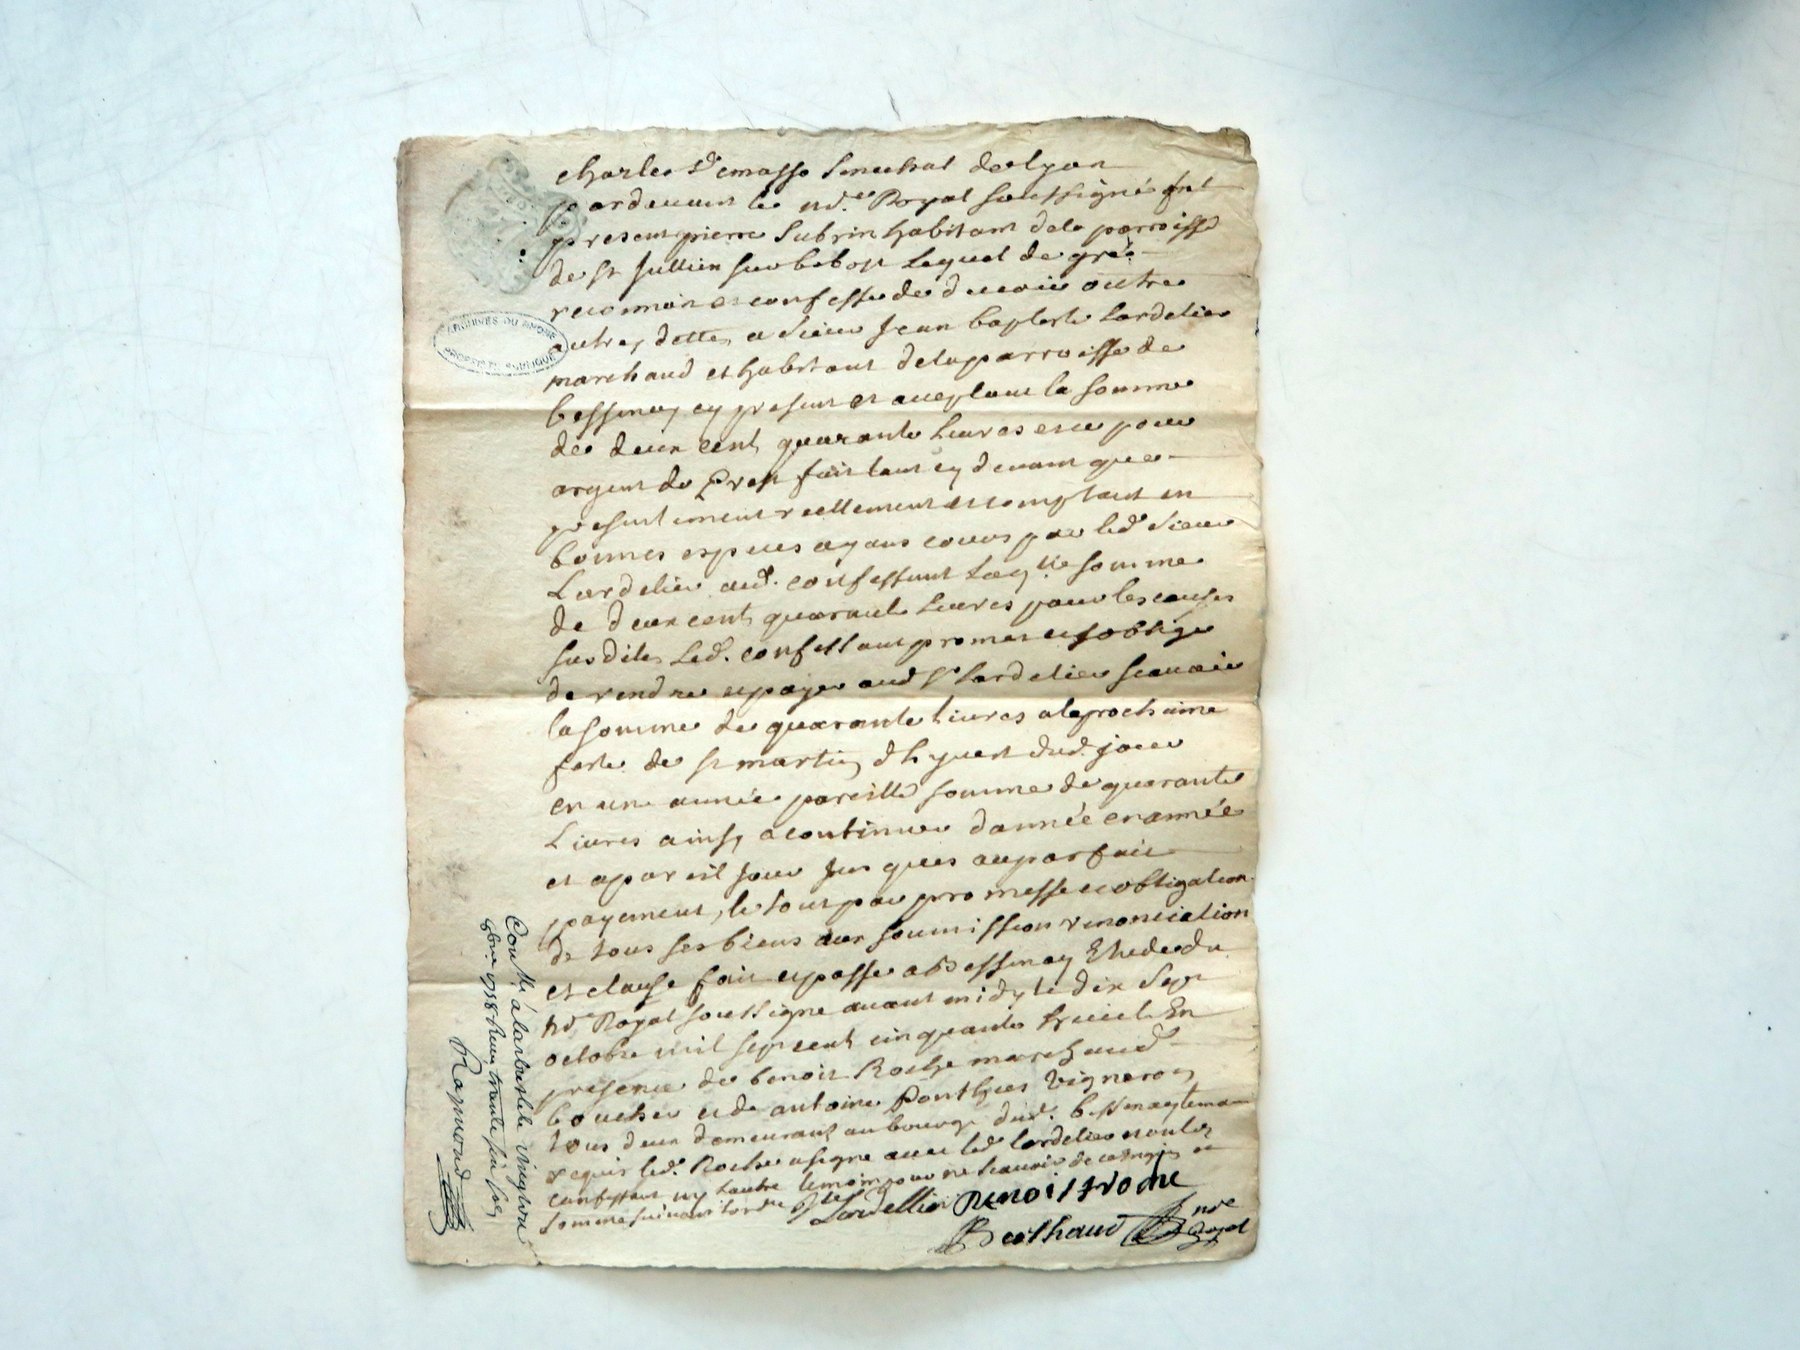 Charles De masso senechal de lyon
pardevant le nre. Royal soussigné fut
present pierre Subrin habitant dela parroisse
de st Jullien sur bebost Lequel de gré
reconnoit et confesse de devoir outre
autres dettes a sieur Jean baptiste Lardelier
marchand et habitant dela parroisse de
bessenay cy present et acceptant la somme
de deux cents quarante livres et ce pour
argent de prest fait tant cy devant que
presentement reellement et comptant en
bonnes especes ayant cours par led. Sieur
Lardelier aud. confessant Laqlle somme
de deux cents quarante livres pour les causes
susdites Led. confessant promet et s'oblige
de rendre et payer aud Sr Lardelier scavoir
la somme de quarante livres a la prochaine
feste de st martin d'hyvert dud. jour
en une année pareille somme de quarante
Livres ainsy a continuer d'année en année
et a pareil jour jusques au parfait
payement, le tout par promesse et obligation
de tous ses biens aux soumission renonciation
et clause fait et passé a Bessenay Etude du
nre Royal soussigné avant midy le dix sept
octobre mil sept cent cinquante huict En
presence de benoit Roche marchand
boucher et de antoine Ponthus Vigneron
tous deux demeurant au bourg dud. bessenay temoins
requis led. Roche a signé avec led. lardelier non led.
confessant ny l'autre temoin pour ne scavoir de ce enquis et
sommé suivant l'ordce Jb Lardellier Benoist roche
Berthaud nre Royal
Conllé à larbresle le vingt un
8bre 1758 Reçu trente six sols
Raymond
ARCHIVES DU RHONE
PROPRIÉTÉ PUBLIQUE